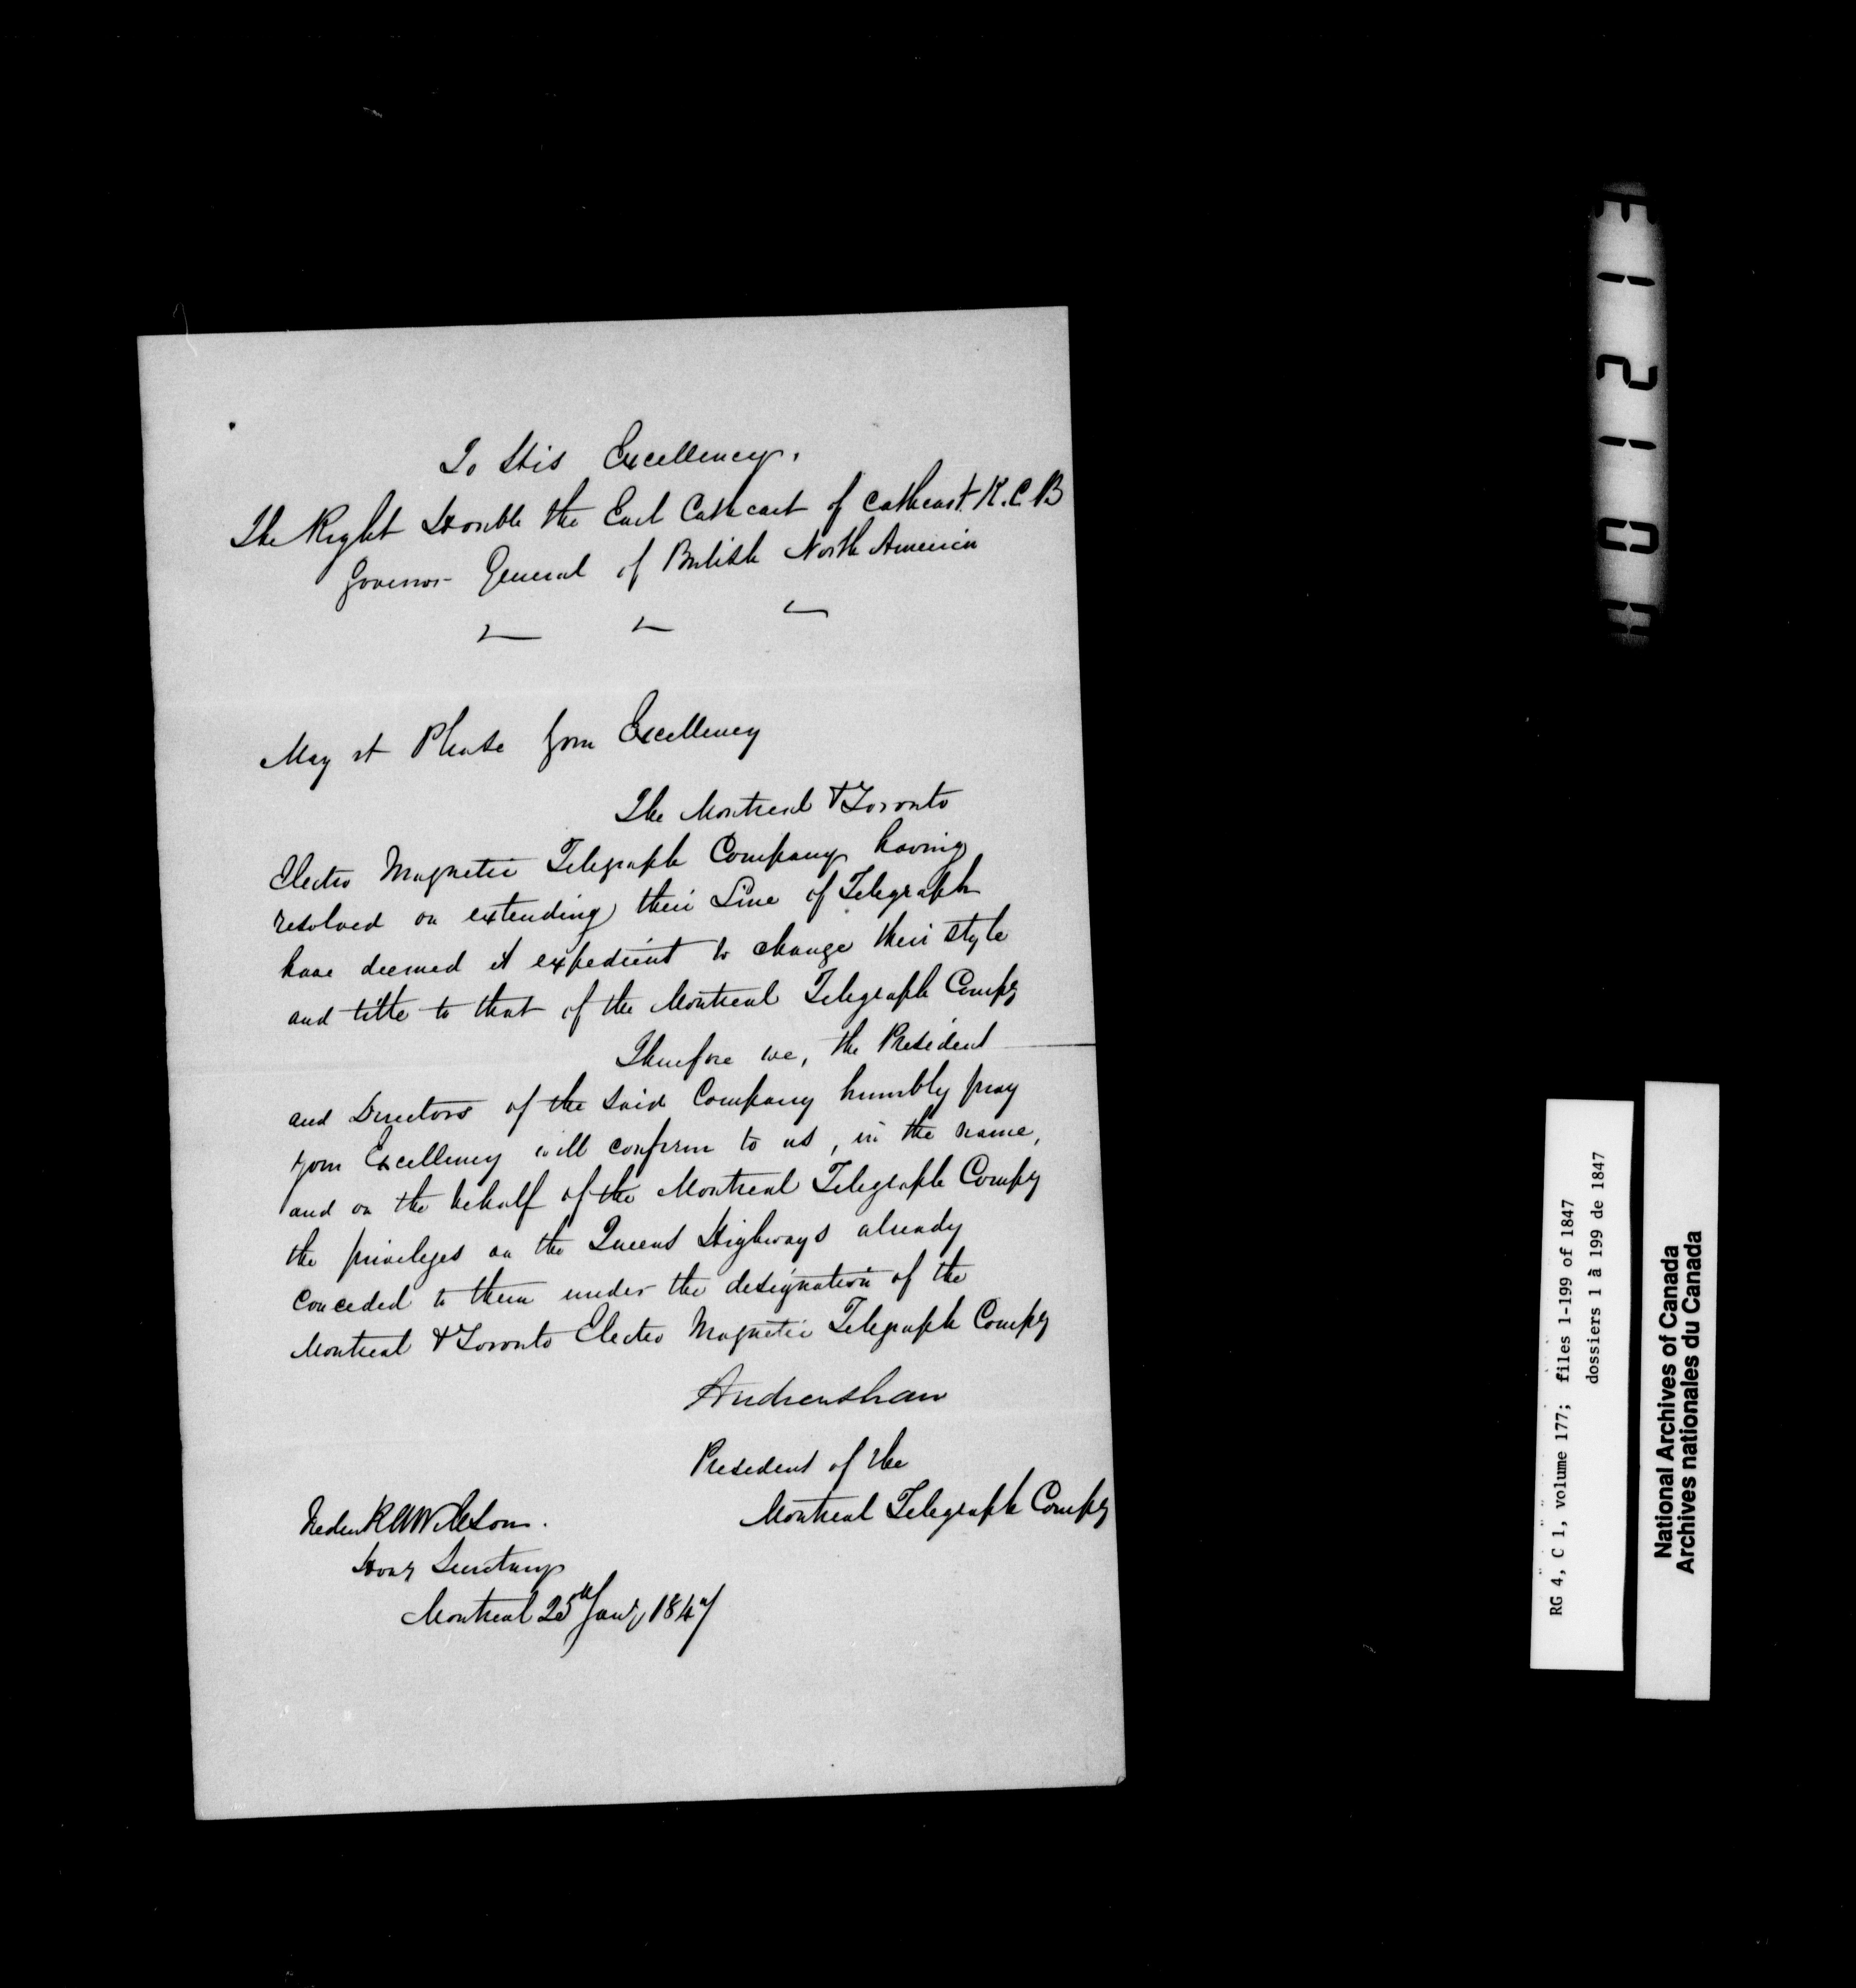 To His Excellency.
The Right Honble the Earl Cathcart of Cathcart K.C.B
Governor General of British North America
May it Please Your Excellency
The Montreal & Toronto
Electro Magnetic Telegraph Company having
resolved on extending their Line of Telegraph
have deemed it expedient to change their style
and title to that of the Montreal Telegraph Compy
Therefore we, the President
and Directors of the said Company humbly pray
your Excellency will confirm to us, in the name,
and on the behalf of the Montreal Telegraph Compy
the privileges on the Queens Highways already
conceded to them under the designation of the
Montreal & Toronto Electro Magnetic Telegraph Compy
Andrew Shaw
President of the
Montreal Telegraph Compy
Hony Secretary
Montreal 25th Jany 1847
12101
RG 4, C 1, volume 177; files 1-199 of 1847
dossiers 1 à 199 de 1847
National Archives of Canada
Archives nationales du Canada